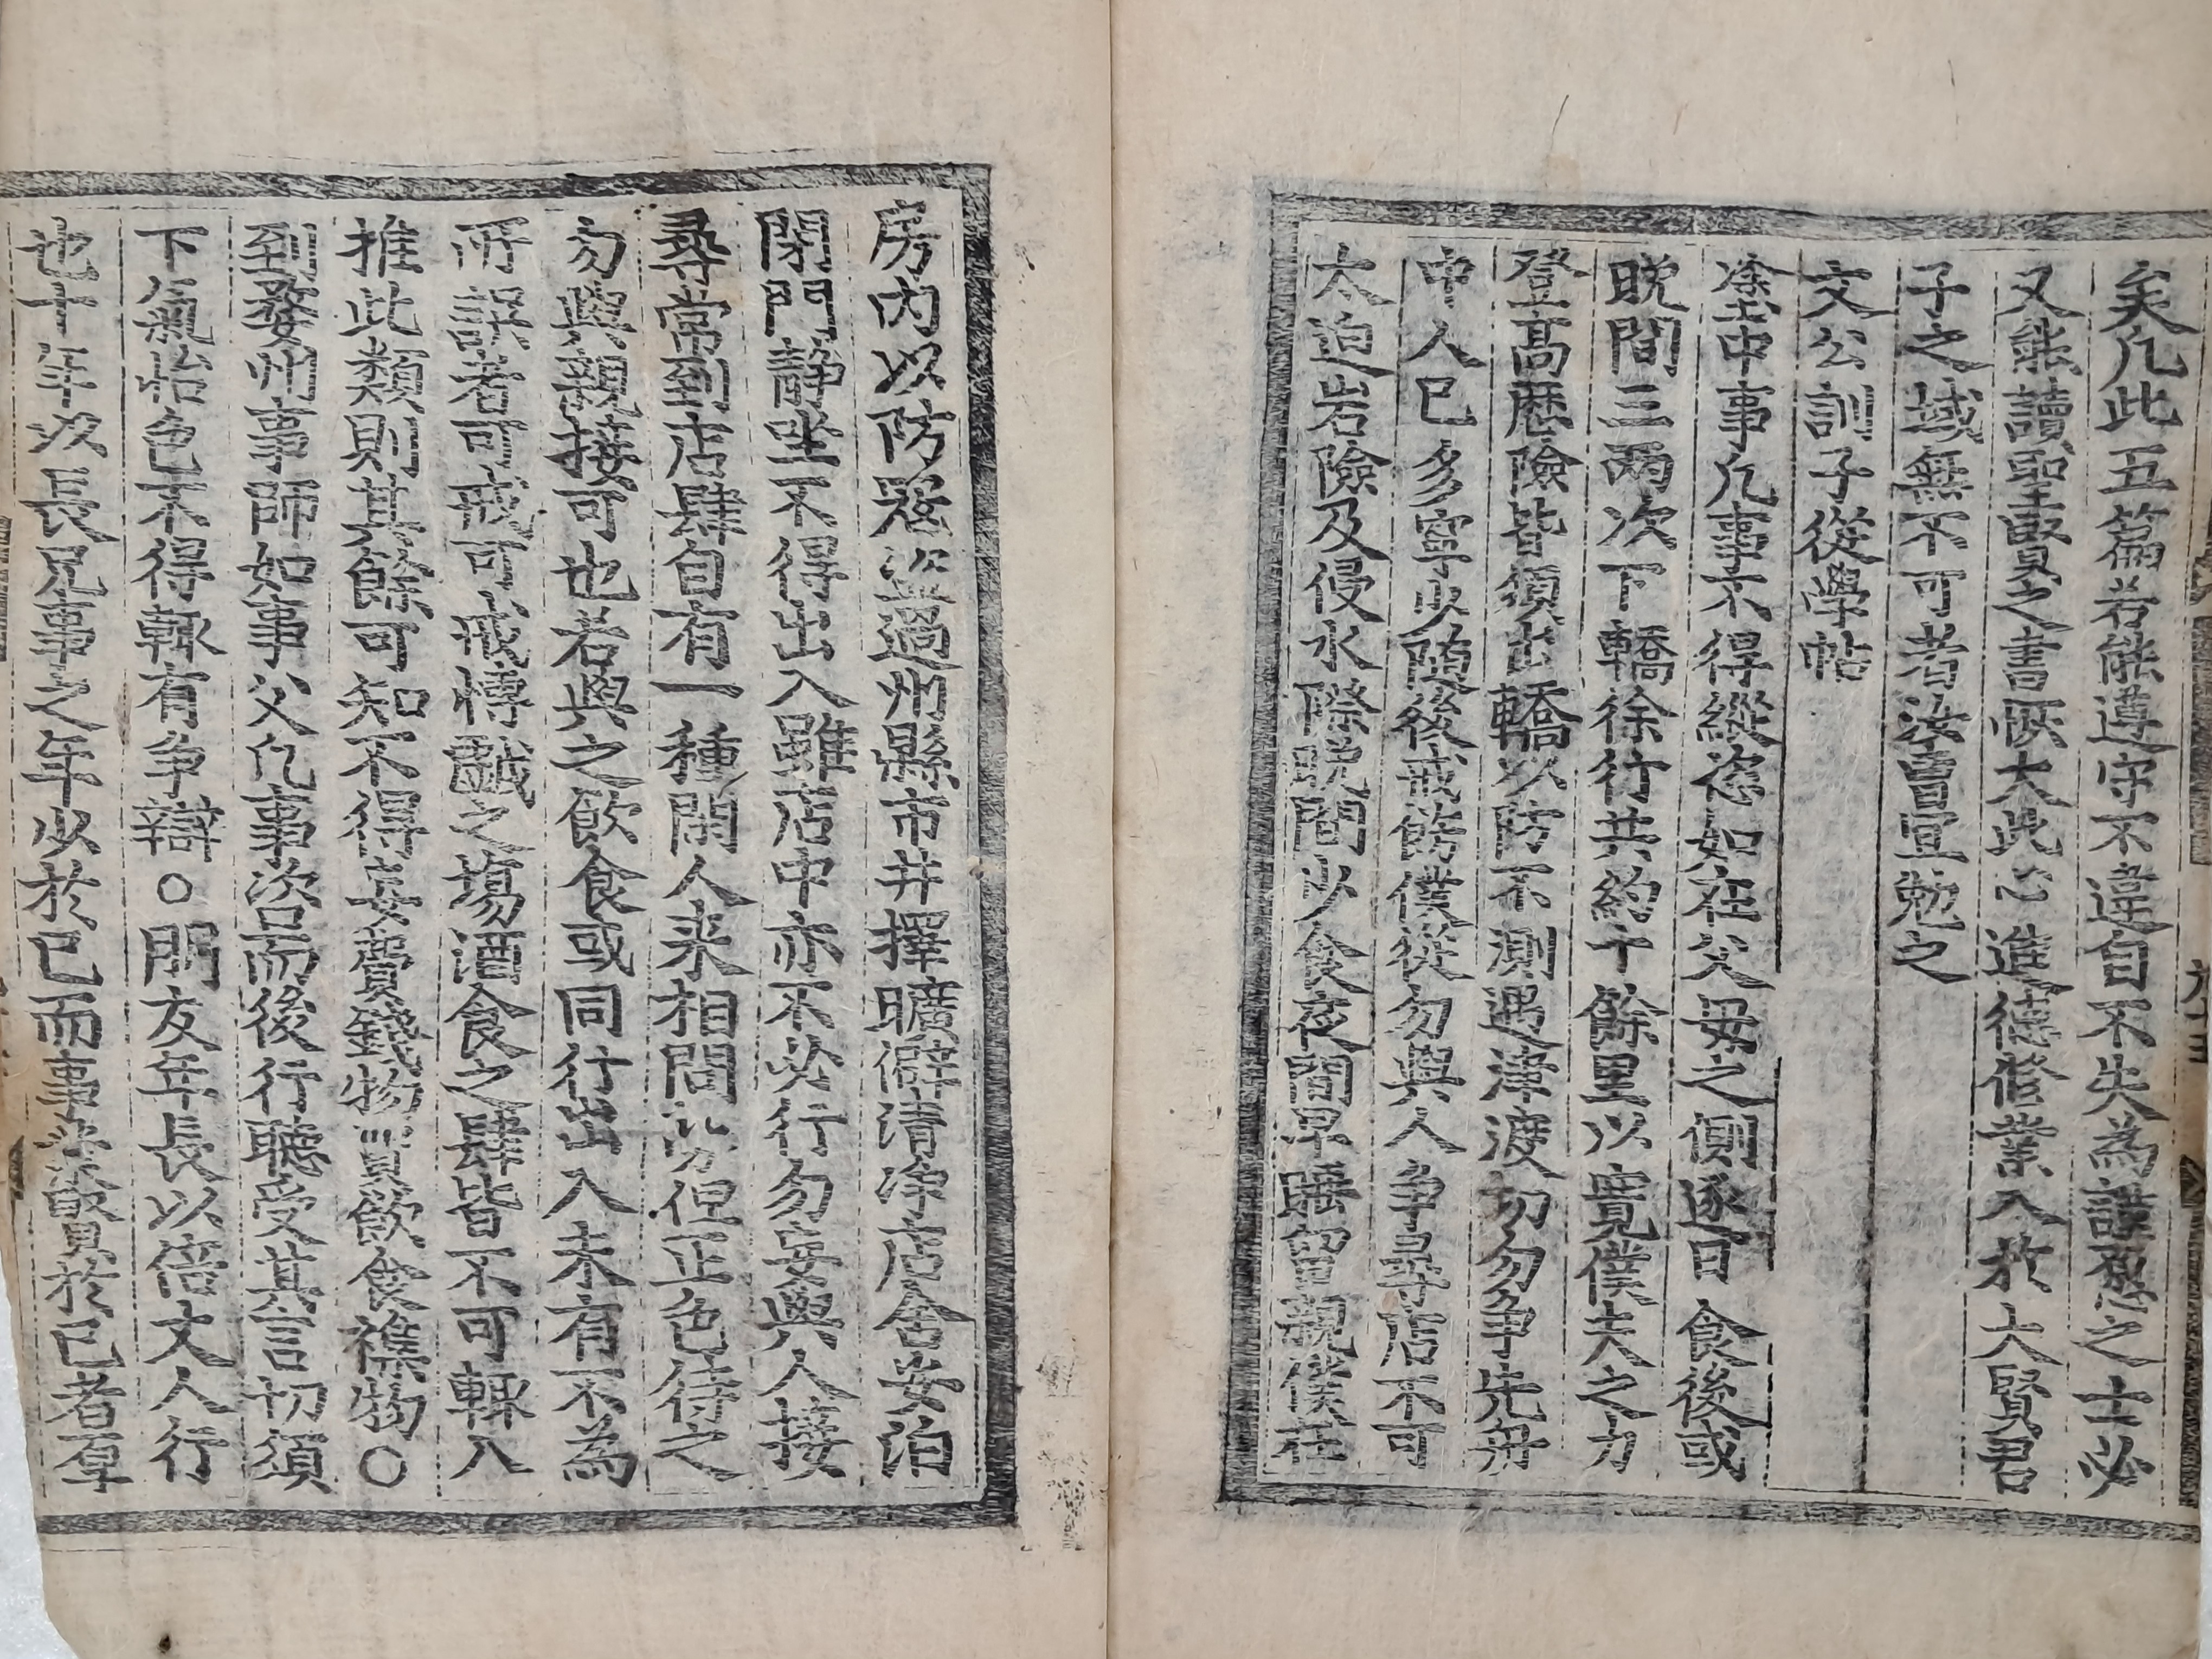 矣凡此五篇者能遵守不違自不失爲謹愿之士必
又能讀聖賢之書恢大此心進德修業入於大賢君
子之域無不可者汝曹宜勉之
文公訓子從學帖
塗中事凡事不得縱恣如在父母之側逐日食後或
晩間三兩次下轎徐行共約十餘里以寬僕夫之力
登高歷險皆須出轎以防不測遇津渡切勿爭先舟
中人已多寧少隨後戒飭僕從勿與人爭事居不可
太迫岩險及侵水際晩間少食夜間早睡當親僕在
房內以防惡盜過州縣市井擇曠僻清淨店舍安泊
閉門靜坐不得出入雖店中亦不必行勿妄與人接
尋常到店肆自有一種閑人來相問必但正色待之
勿與親接可也若與之飲食或同行出入未有不爲
所誤者可戒可戒可戒樗蒱之蕩酒食之肆皆不可輒入
推此類則其餘可知不得妄費錢物買飲食雜物○
到婺州事師如事父凡事咨而後行聽受其言切須
下氣怡色不得輒有爭辯○朋友年長以倍丈人行
也十年以長兄事之年少於己而事業賢於己者厚
九三